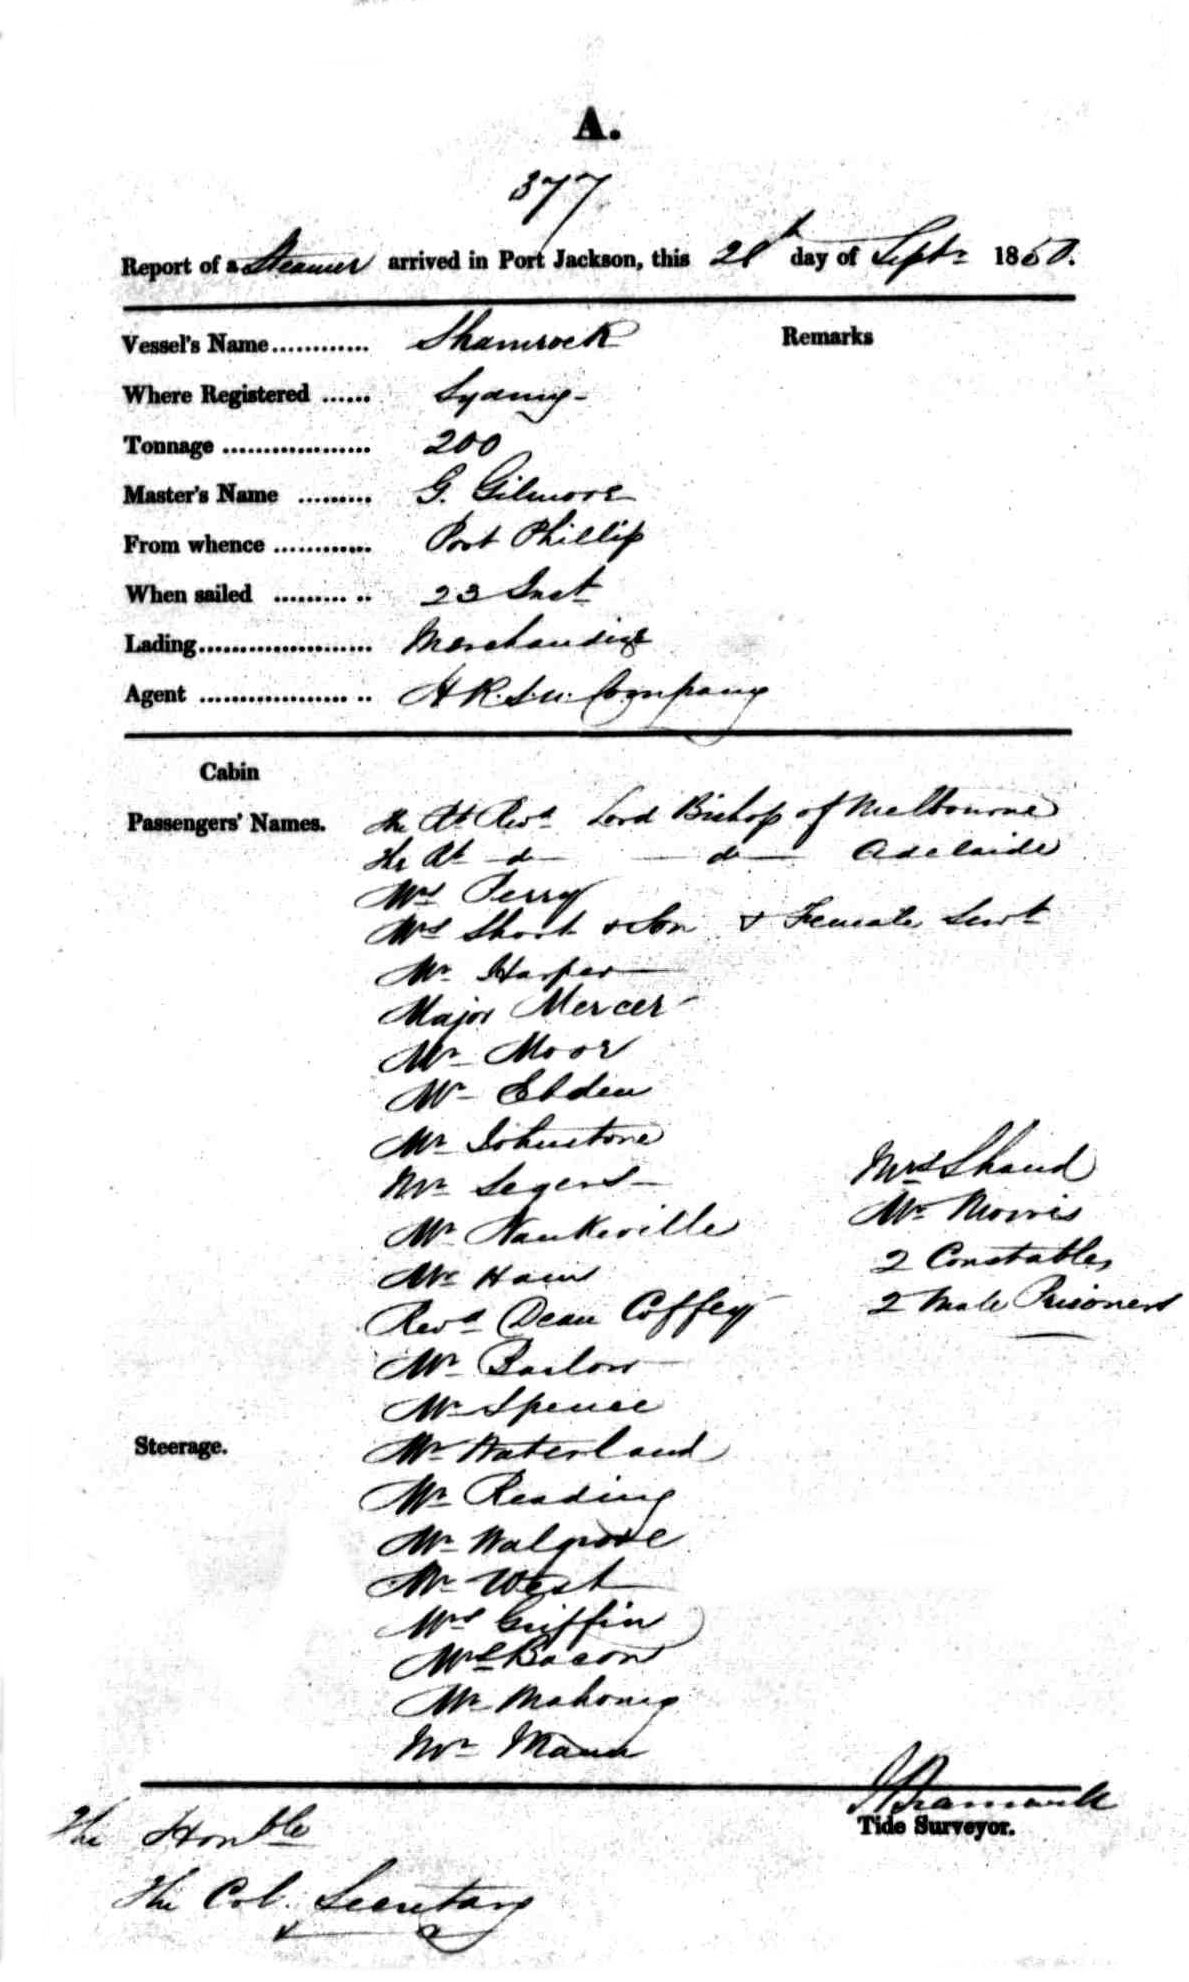 A.
377
Report of a Steamer arrived in Port Jackson, this 28th day of Septr 1850.
Vessel's Name............ Shamrock
Remarks
Where Registered ...... Sydney
Tonnage .................. 200
Master's Name ......... G. Gilmore
From whence ............ Port Phillip
When sailed ......... .. 23 Inst
Lading..................... Merchandize
Agent .................. .. H R. S. N. Company
Cabin
Passengers' Names. The Rt Revd Lord Bishop of Melbourne
The Rt —do— —do— Adelaide
Mrs Perry
Mrs Short & Son & Female Servt
Mr Harper
Major Mercer
Mr Moor
Mr Ebden
Mr Johnstone
Mr Segers
Mr Mr Ham
Revd Dean Coffey
Mr Barlow
Mr Spence
Mrs Shand
Mr Morris
2 Constables
2 Male Prisoners
Steerage. Mr Waterland
Mr Reading
Mr Walgrove
Mr West
Mrs Griffin
Mrs Bacon
Mr Mahony
Mr Mann
Tide Surveyor.
The Honble
The Col. Secretary